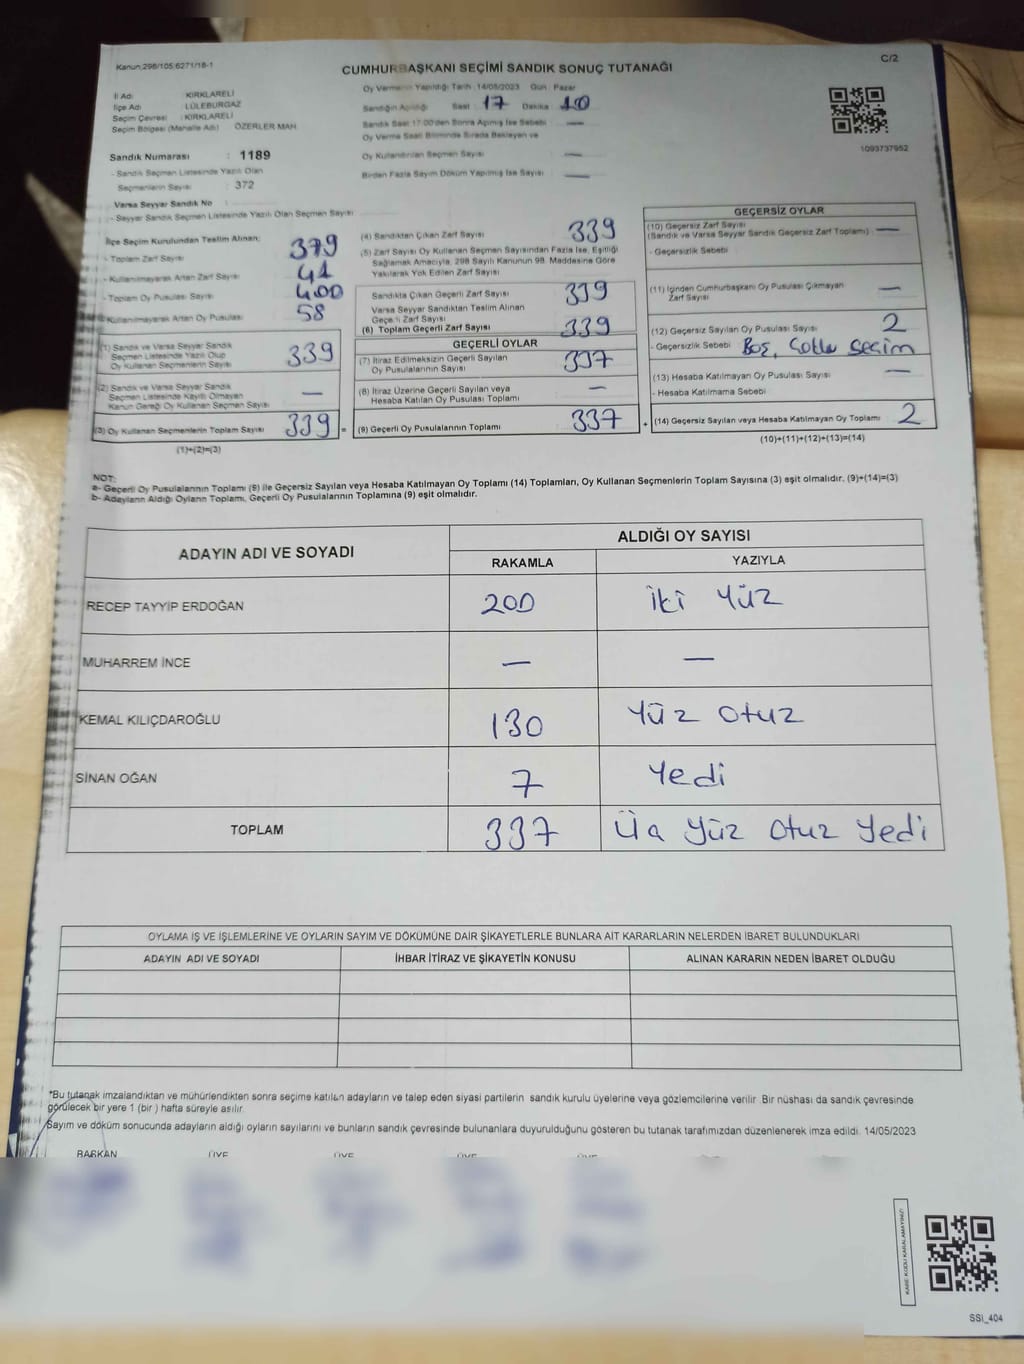 Kanun:298/105;6271/18-1
C/2
CUMHURBAŞKANI SEÇİMİ SANDIK SONUÇ TUTANAĞI
İl Adı : KIRKLARELİ
İlçe Adı : LÜLEBURGAZ
Seçim Çevresi : KIRKLARELİ
Seçim Bölgesi (Mahalle Adı) : ÖZERLER MAH.
Oy Vermenin Yapıldığı Tarih : 14/05/2023 Gün : Pazar
Sandığın Açıldığı Saat : 17 Dakika : 10
Sandık Saat 17:00'den Sonra Açılmış İse Sebebi : —
Oy Verme Saati Bitiminde Sırada Bekleyen ve
Oy Kullandırılan Seçmen Sayısı : —
Birden Fazla Sayım Döküm Yapılmış İse Sayısı : —
1093737952
Sandık Numarası : 1189
- Sandık Seçmen Listesinde Yazılı Olan
Seçmenlerin Sayısı : 372
Varsa Seyyar Sandık No :
- Seyyar Sandık Seçmen Listesinde Yazılı Olan Seçmen Sayısı
İlçe Seçim Kurulundan Teslim Alınan:
- Toplam Zarf Sayısı 379
- Kullanılmayarak Artan Zarf Sayısı 41
- Toplam Oy Pusulası Sayısı 400
- Kullanılmayarak Artan Oy Pusulası 58
(1) Sandık ve Varsa Seyyar Sandık
Seçmen Listesinde Yazılı Olup
Oy Kullanan Seçmenlerin Sayısı 339
(2) Sandık ve Varsa Seyyar Sandık
Seçmen Listesinde Kayıtlı Olmayan
Kanun Gereği Oy Kullanan Seçmen Sayısı —
(3) Oy Kullanan Seçmenlerin Toplam Sayısı 339 =
(1)+(2)=(3)
(4) Sandıktan Çıkan Zarf Sayısı 339
(5) Zarf Sayısı Oy Kullanan Seçmen Sayısından Fazla İse, Eşitliği
Sağlamak Amacıyla, 298 Sayılı Kanunun 98. Maddesine Göre
Yakılarak Yok Edilen Zarf Sayısı
Sandıkta Çıkan Geçerli Zarf Sayısı 339
Varsa Seyyar Sandıktan Teslim Alınan
Geçerli Zarf Sayısı
(6) Toplam Geçerli Zarf Sayısı 339
GEÇERLİ OYLAR
(7) İtiraz Edilmeksizin Geçerli Sayılan
Oy Pusulalarının Sayısı 337
(8) İtiraz Üzerine Geçerli Sayılan veya
Hesaba Katılan Oy Pusulası Toplamı —
(9) Geçerli Oy Pusulalarının Toplamı 337 +
GEÇERSİZ OYLAR
(10) Geçersiz Zarf Sayısı
(Sandık ve Varsa Seyyar Sandık Geçersiz Zarf Toplamı) —
- Geçersizlik Sebebi
(11) İçinden Cumhurbaşkanı Oy Pusulası Çıkmayan
Zarf Sayısı —
(12) Geçersiz Sayılan Oy Pusulası Sayısı 2
- Geçersizlik Sebebi Boş, Çoklu Seçim
(13) Hesaba Katılmayan Oy Pusulası Sayısı —
- Hesaba Katılmama Sebebi
(14) Geçersiz Sayılan veya Hesaba Katılmayan Oy Toplamı 2
(10)+(11)+(12)+(13)=(14)
NOT:
a- Geçerli Oy Pusulalarının Toplamı (9) ile Geçersiz Sayılan veya Hesaba Katılmayan Oy Toplamı (14) Toplamları, Oy Kullanan Seçmenlerin Toplam Sayısına (3) eşit olmalıdır. (9)+(14)=(3)
b- Adayların Aldığı Oyların Toplamı, Geçerli Oy Pusulalarının Toplamına (9) eşit olmalıdır.
ADAYIN ADI VE SOYADI
ALDIĞI OY SAYISI
RAKAMLA YAZIYLA
RECEP TAYYİP ERDOĞAN 200 İki Yüz
MUHARREM İNCE — —
KEMAL KILIÇDAROĞLU 130 Yüz otuz
SİNAN OĞAN 7 Yedi
TOPLAM 337 Üç Yüz otuz Yedi
OYLAMA İŞ VE İŞLEMLERİNE VE OYLARIN SAYIM VE DÖKÜMÜNE DAİR ŞİKAYETLERLE BUNLARA AİT KARARLARIN NELERDEN İBARET BULUNDUKLARI
ADAYIN ADI VE SOYADI İHBAR İTİRAZ VE ŞİKAYETİN KONUSU ALINAN KARARIN NEDEN İBARET OLDUĞU
*Bu tutanak imzalandıktan ve mühürlendikten sonra seçime katılan adayların ve talep eden siyasi partilerin sandık kurulu üyelerine veya gözlemcilerine verilir. Bir nüshası da sandık çevresinde
görülecek bir yere 1 (bir ) hafta süreyle asılır.
Sayım ve döküm sonucunda adayların aldığı oyların sayılarını ve bunların sandık çevresinde bulunanlara duyurulduğunu gösteren bu tutanak tarafımızdan düzenlenerek imza edildi. 14/05/2023
BAŞKAN ÜYE ÜYE ÜYE ÜYE
KARE KODU KARALAMAYINIZ!
SSİ_404